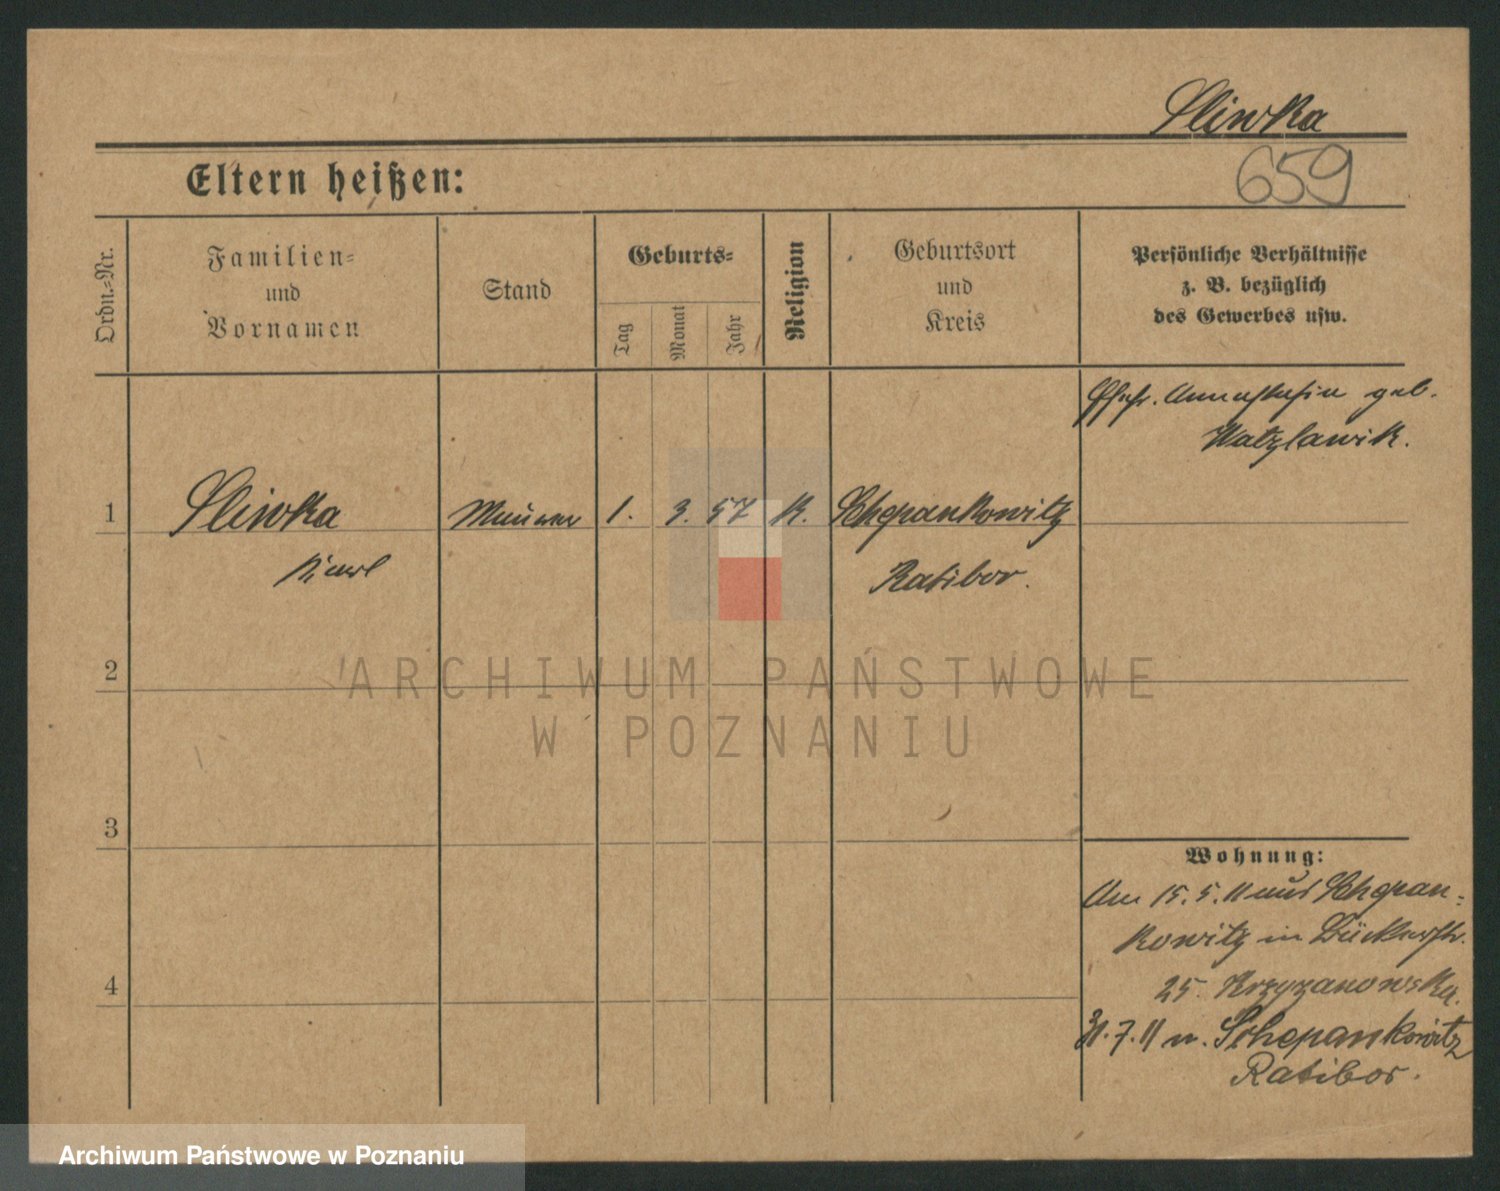 Sliwka
659
Eltern heißen:
Ordn.-Nr.
Familien-
und
Vornamen
Stand
Geburts-
Tag
Monat
Jahr
Religion
Geburtsort
und
Kreis
Persönliche Verhältnisse
z. B. bezüglich
des Gewerbes usw.
Ehefr. Annastasia geb.
Watzlawik.
1
Sliwka
Maurer
1.
3.
57
K.
Schepankowitz
Karl
Ratibor.
2
ARCHIWUM PAŃSTWOWE
W POZNANIU
3
4
Wohnung:
Am 15.5.11 aus Schepan-
kowitz in Bückerstr.
25 Krzyzanowska.
31.7.11 n. Schepankowitz
Ratibor.
Archiwum Państwowe w Poznaniu